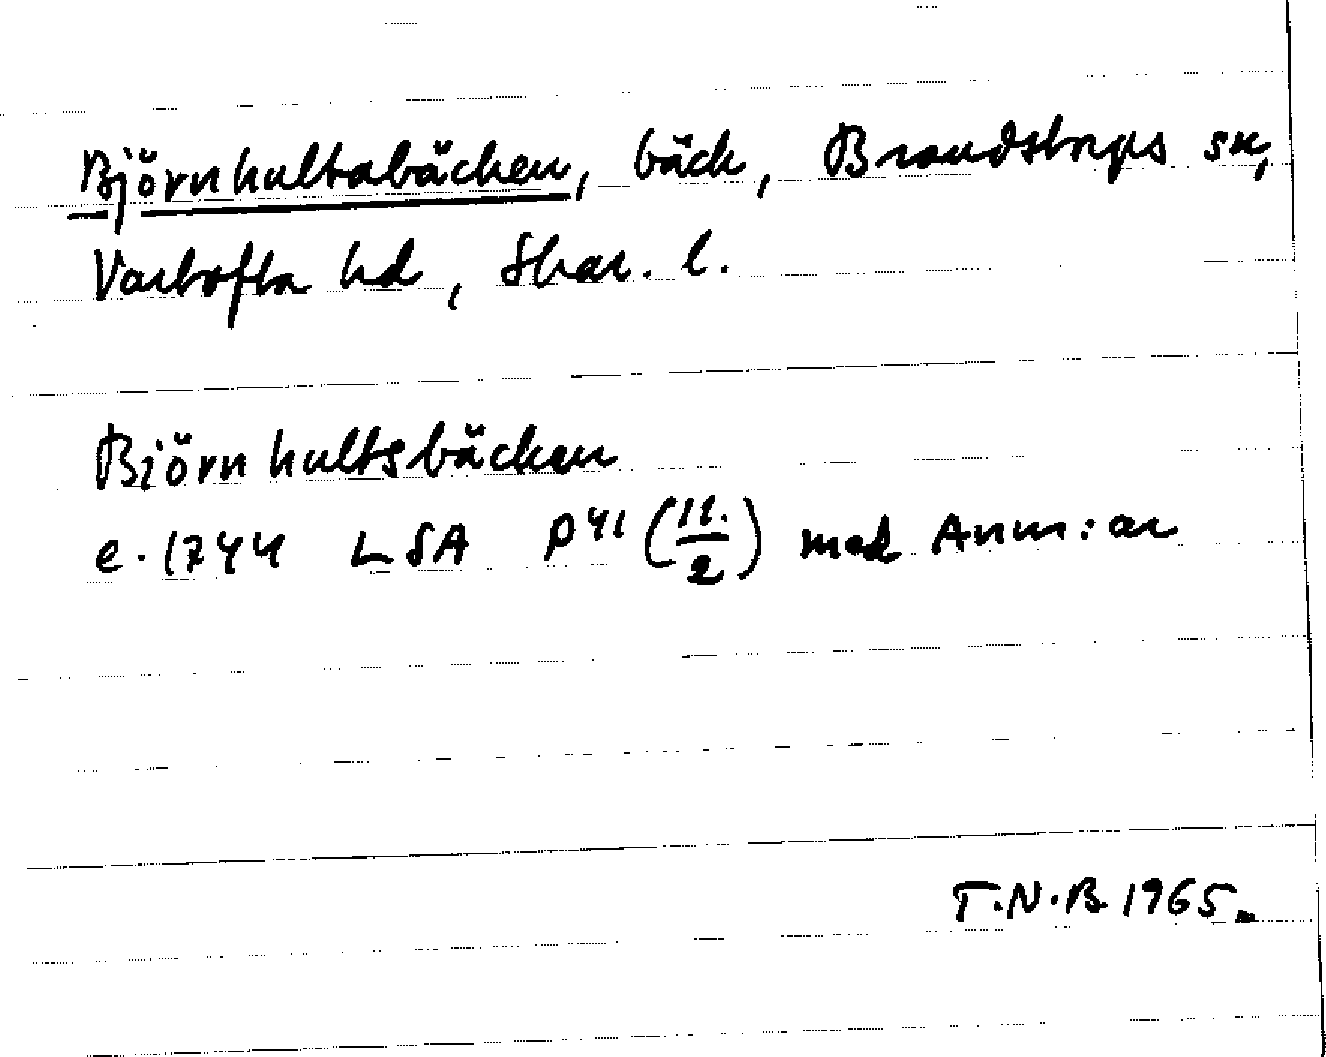 Björnhultabäcken, bäck, Brandstorps sn,
Vartofta hd, Skar. l.
Björnhultsbäcken
e. 1744 LSA P41 (11./2) med Anm:ar
T.N.B. 1965.